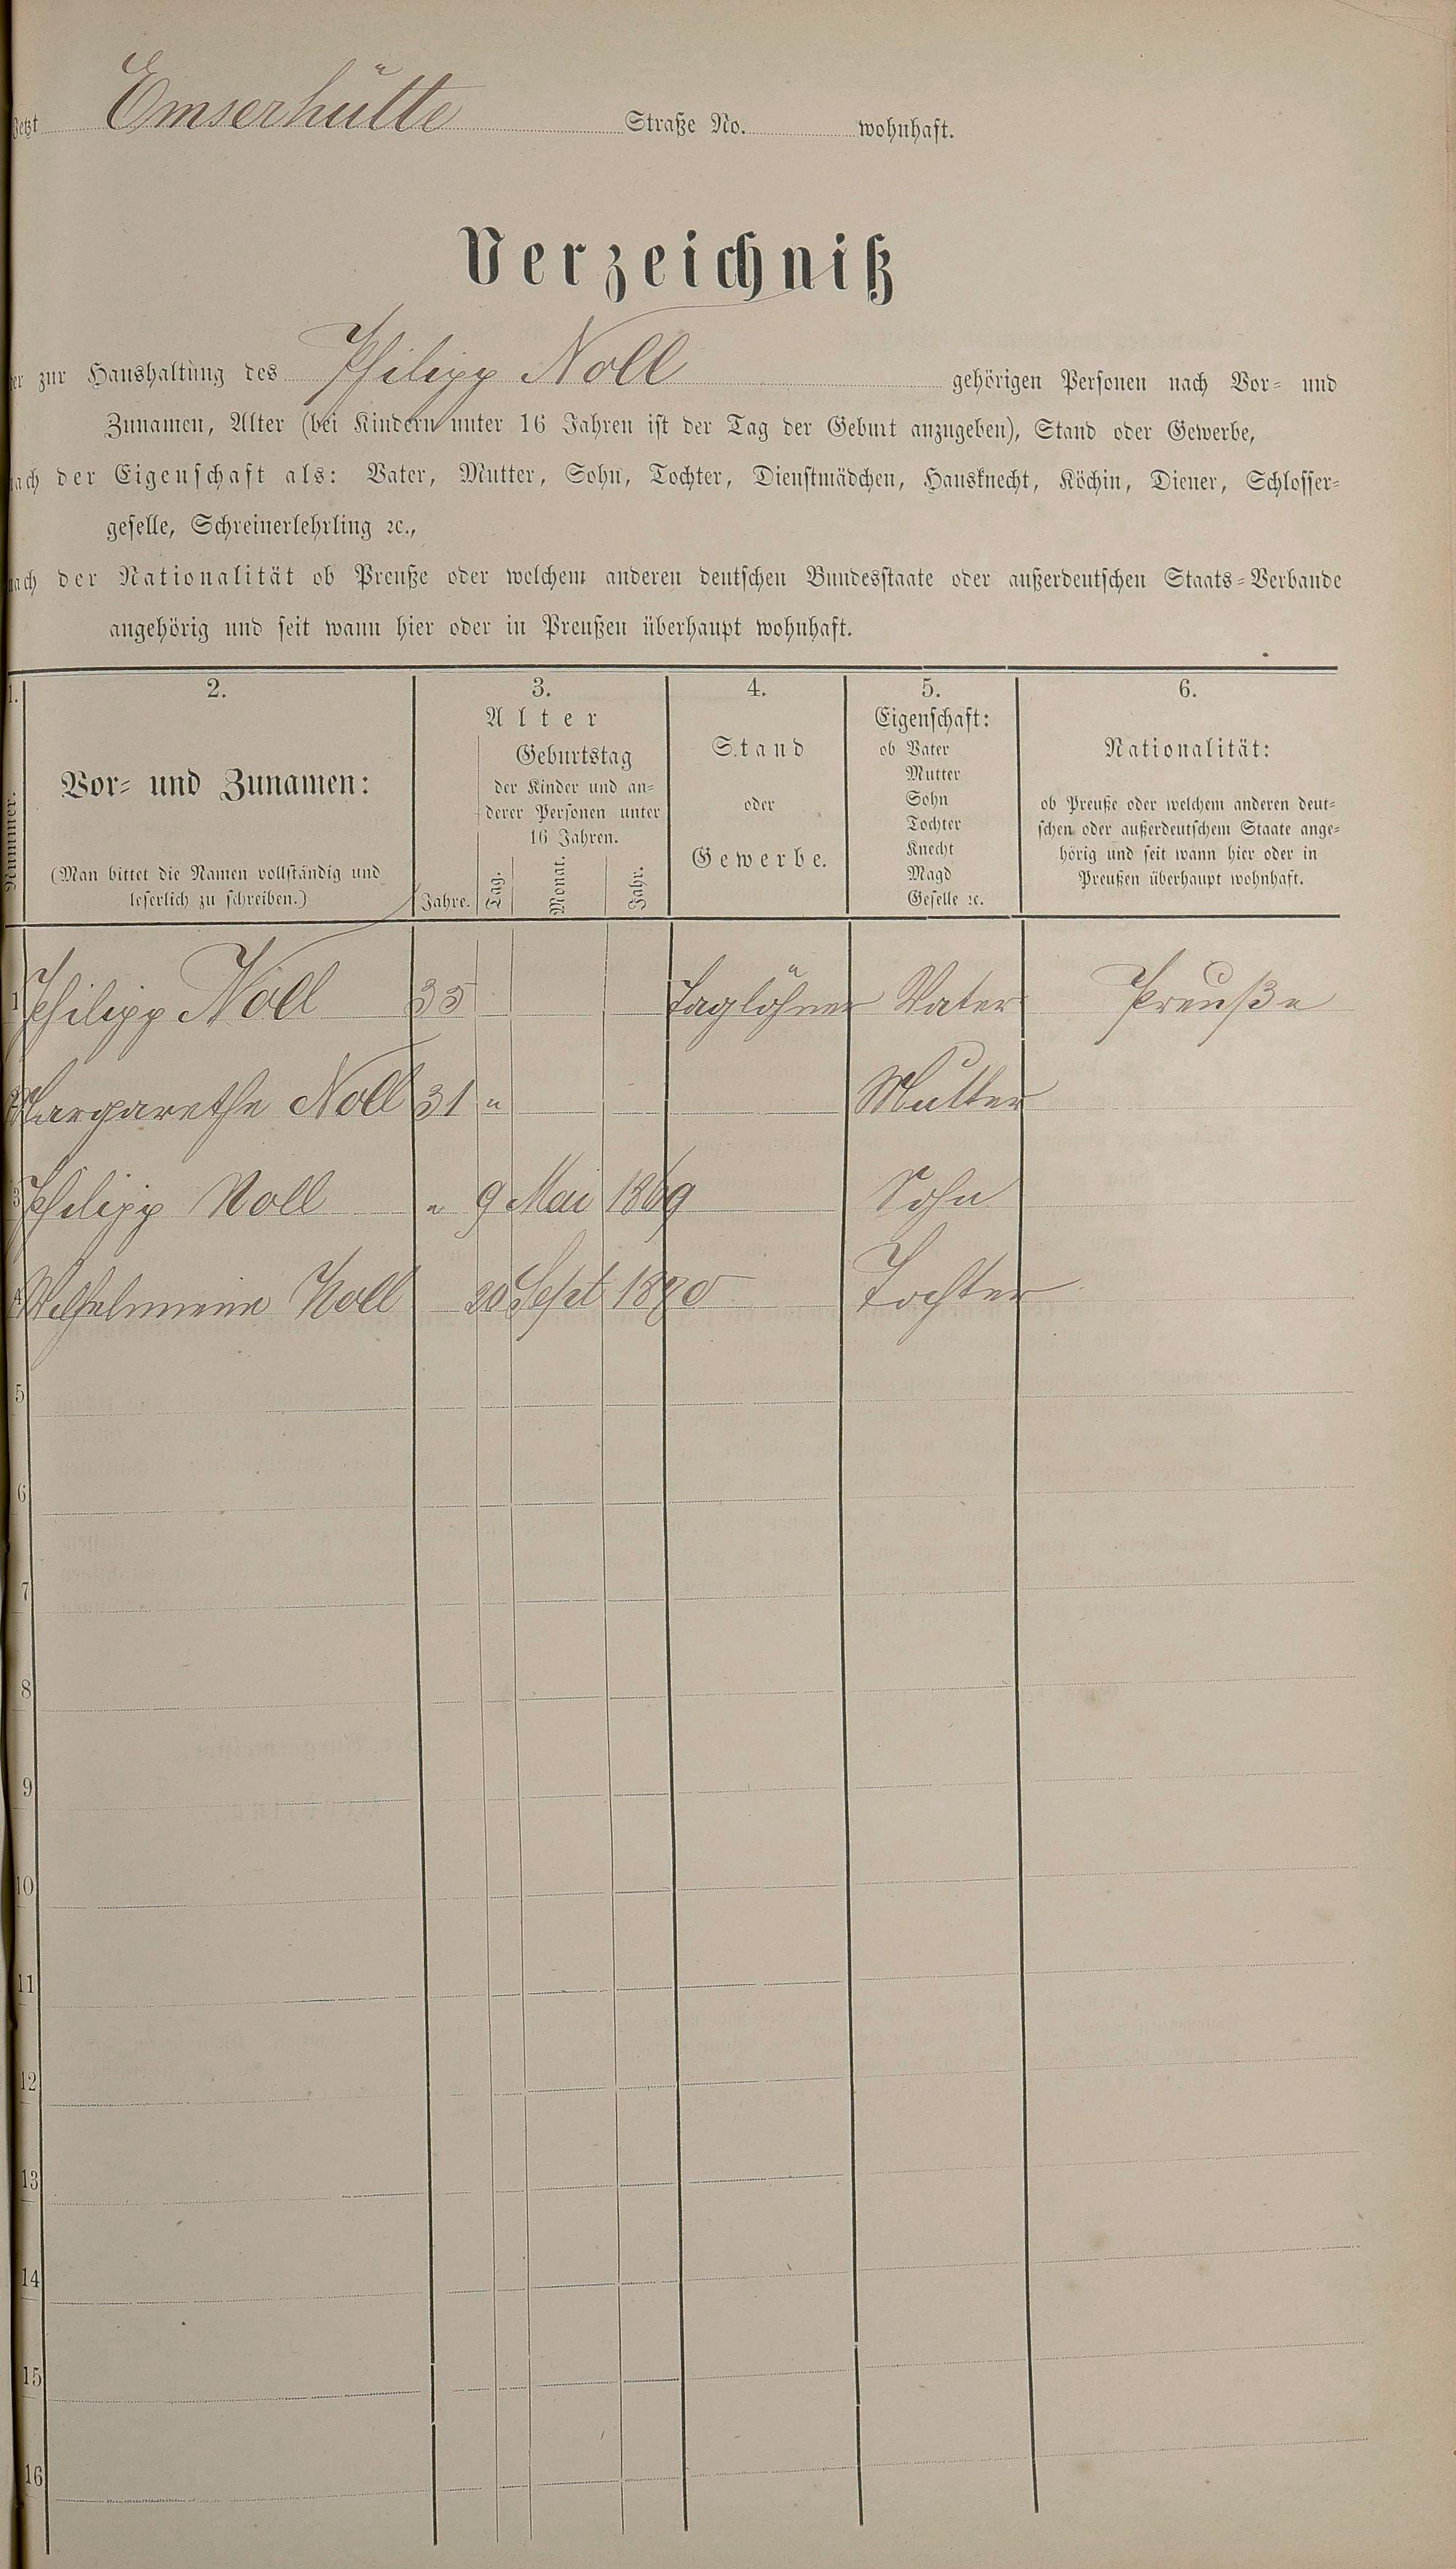 Jetzt Emserhütte Straße No. wohnhaft.
Verzeichniß
der zur Haushaltung des Philipp Noll gehörigen Personen nach Vor- und
Zunamen, Alter (bei Kindern unter 16 Jahren ist der Tag der Geburt anzugeben), Stand oder Gewerbe,
nach der Eigenschaft als: Vater, Mutter, Sohn, Tochter, Dienstmädchen, Hausknecht, Köchin, Diener, Schlosser-
geselle, Schreinerlehrling ꝛc.,
nach der Nationalität ob Preuße oder welchem anderen deutschen Bundesstaate oder außerdeutschen Staats-Verbande
angehörig und seit wann hier oder in Preußen überhaupt wohnhaft.
1.
Nummer.
2.
Vor- und Zunamen:
(Man bittet die Namen vollständig und
leserlich zu schreiben.)
3.
Alter
Jahre.
Geburtstag
der Kinder und an-
derer Personen unter
16 Jahren.
Tag. Monat. Jahr.
4.
Stand
oder
Gewerbe.
5.
Eigenschaft:
ob Vater
Mutter
Sohn
Tochter
Knecht
Magd
Geselle ꝛc.
6.
Nationalität:
ob Preuße oder welchem anderen deut-
schen oder außerdeutschem Staate ange-
hörig und seit wann hier oder in
Preußen überhaupt wohnhaft.
1 Philipp Noll 35 Taglöhner Vater Preuße
2 Margarethe Noll 31 " Mutter
3 Philipp Noll " 9 Mai 1869 Sohn
4 Wilhelmine Noll 20 Sept 1870 Tochter
5
6
7
8
9
10
11
12
13
14
15
16